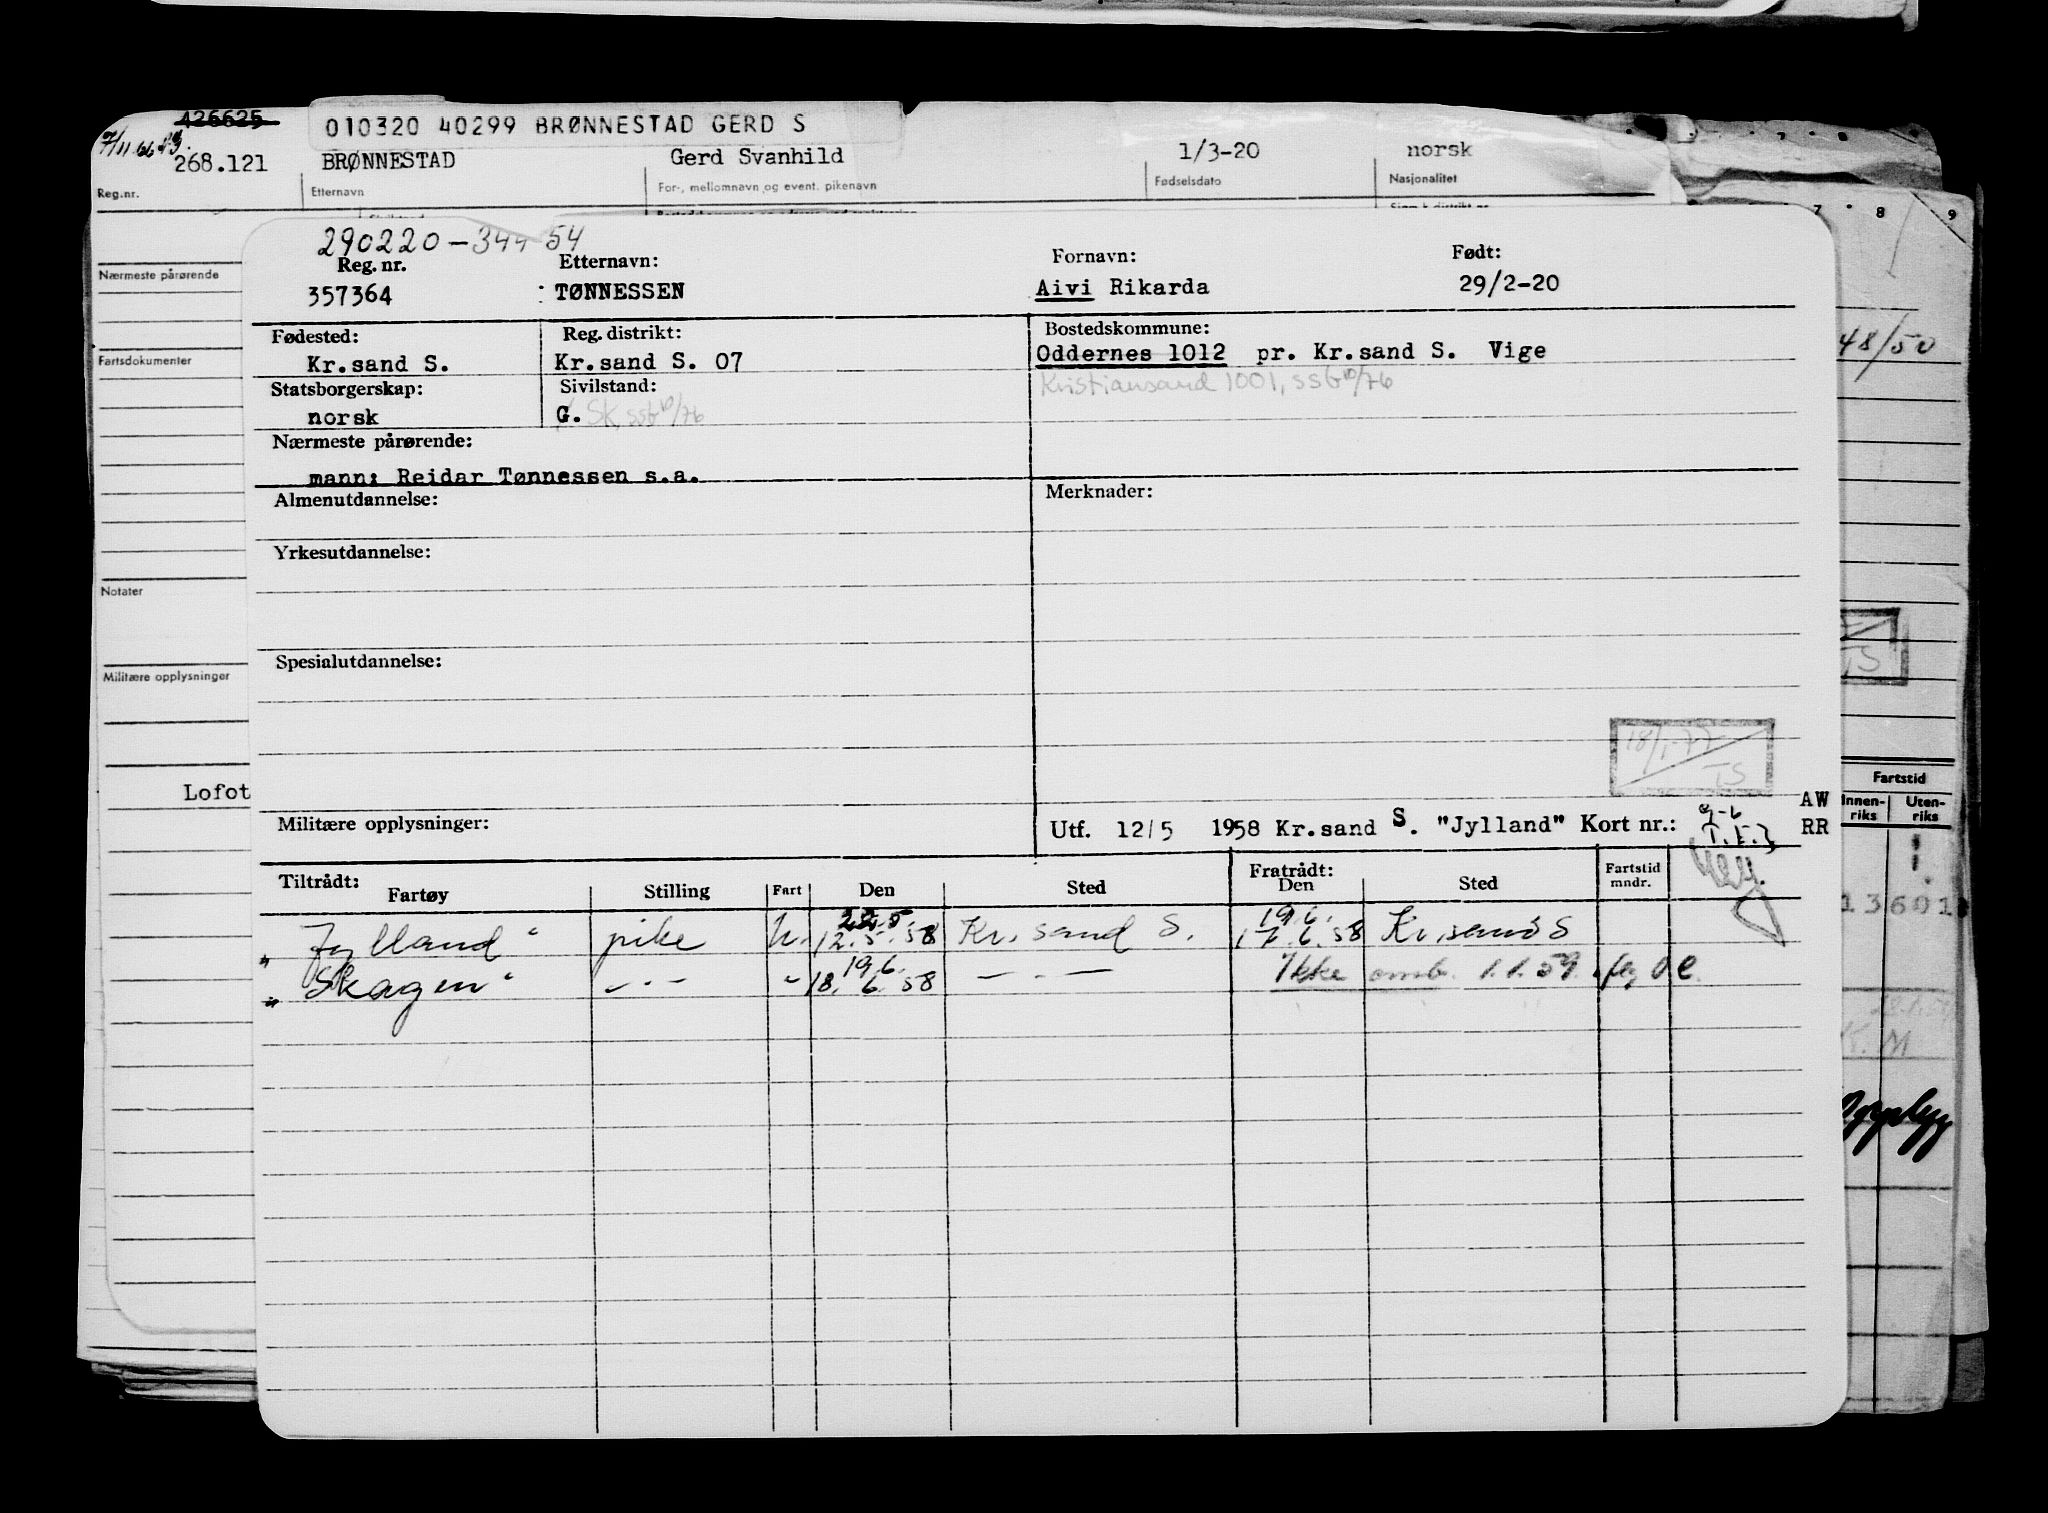 426625
010320 40299 BRØNNESTAD GERD S
7/11 66
268.121 BRØNNESTAD Gerd Svanhild 1/3-20 norsk
Reg.nr. Etternavn For-, mellomnavn og event. pikenavn Fødselsdato Nasjonalitet
7 8 9
290220-344 54
Reg. nr. Etternavn: Fornavn: Født:
357364 TØNNESSEN Aivi Rikarda 29/2-20
Nærmeste pårørende
Fødested: Reg. distrikt: Bostedskommune:
Kr.sand S. Kr.sand S. 07 Oddernes 1012 pr. Kr.sand S. Vige
48/50
Fartsdokumenter
Statsborgerskap: Sivilstand: Kristiansand 1001, SSB 10/76
norsk G. Sk, SSB 10/76
Nærmeste pårørende:
mann: Reidar Tønnessen s.a.
Almenutdannelse: Merknader:
Yrkesutdannelse:
Notater
Spesialutdannelse:
Militære opplysninger
TS
18/1-77
TS
Lofot
Fartstid
Innen-riks Uten-riks
Militære opplysninger: Utf. 12/5 1958 Kr.sand S. "Jylland" Kort nr.: AW
RR
Tiltrådt: Fratrådt:
Fartøy Stilling Fart Den Sted Den Sted Fartstid mndr.
22.5. 19.6.
"Jylland" pike u. 12.5.58 Kr.sand S. 17.6.58 Kr.sand S
13601
19.6.
"Skagen" -.- " 18.6.58 -.- Ikke omb. 1.1.59.
K. M